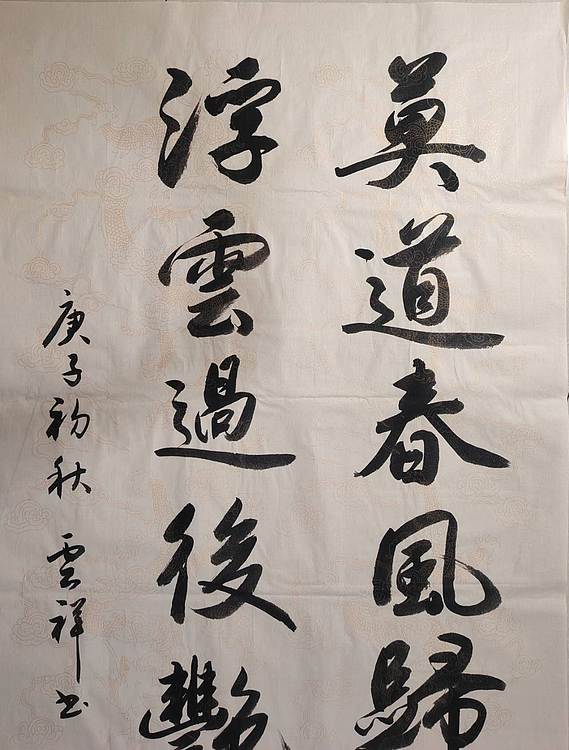 莫道春風歸
浮雲過後艷
庚子初秋 雲祥书